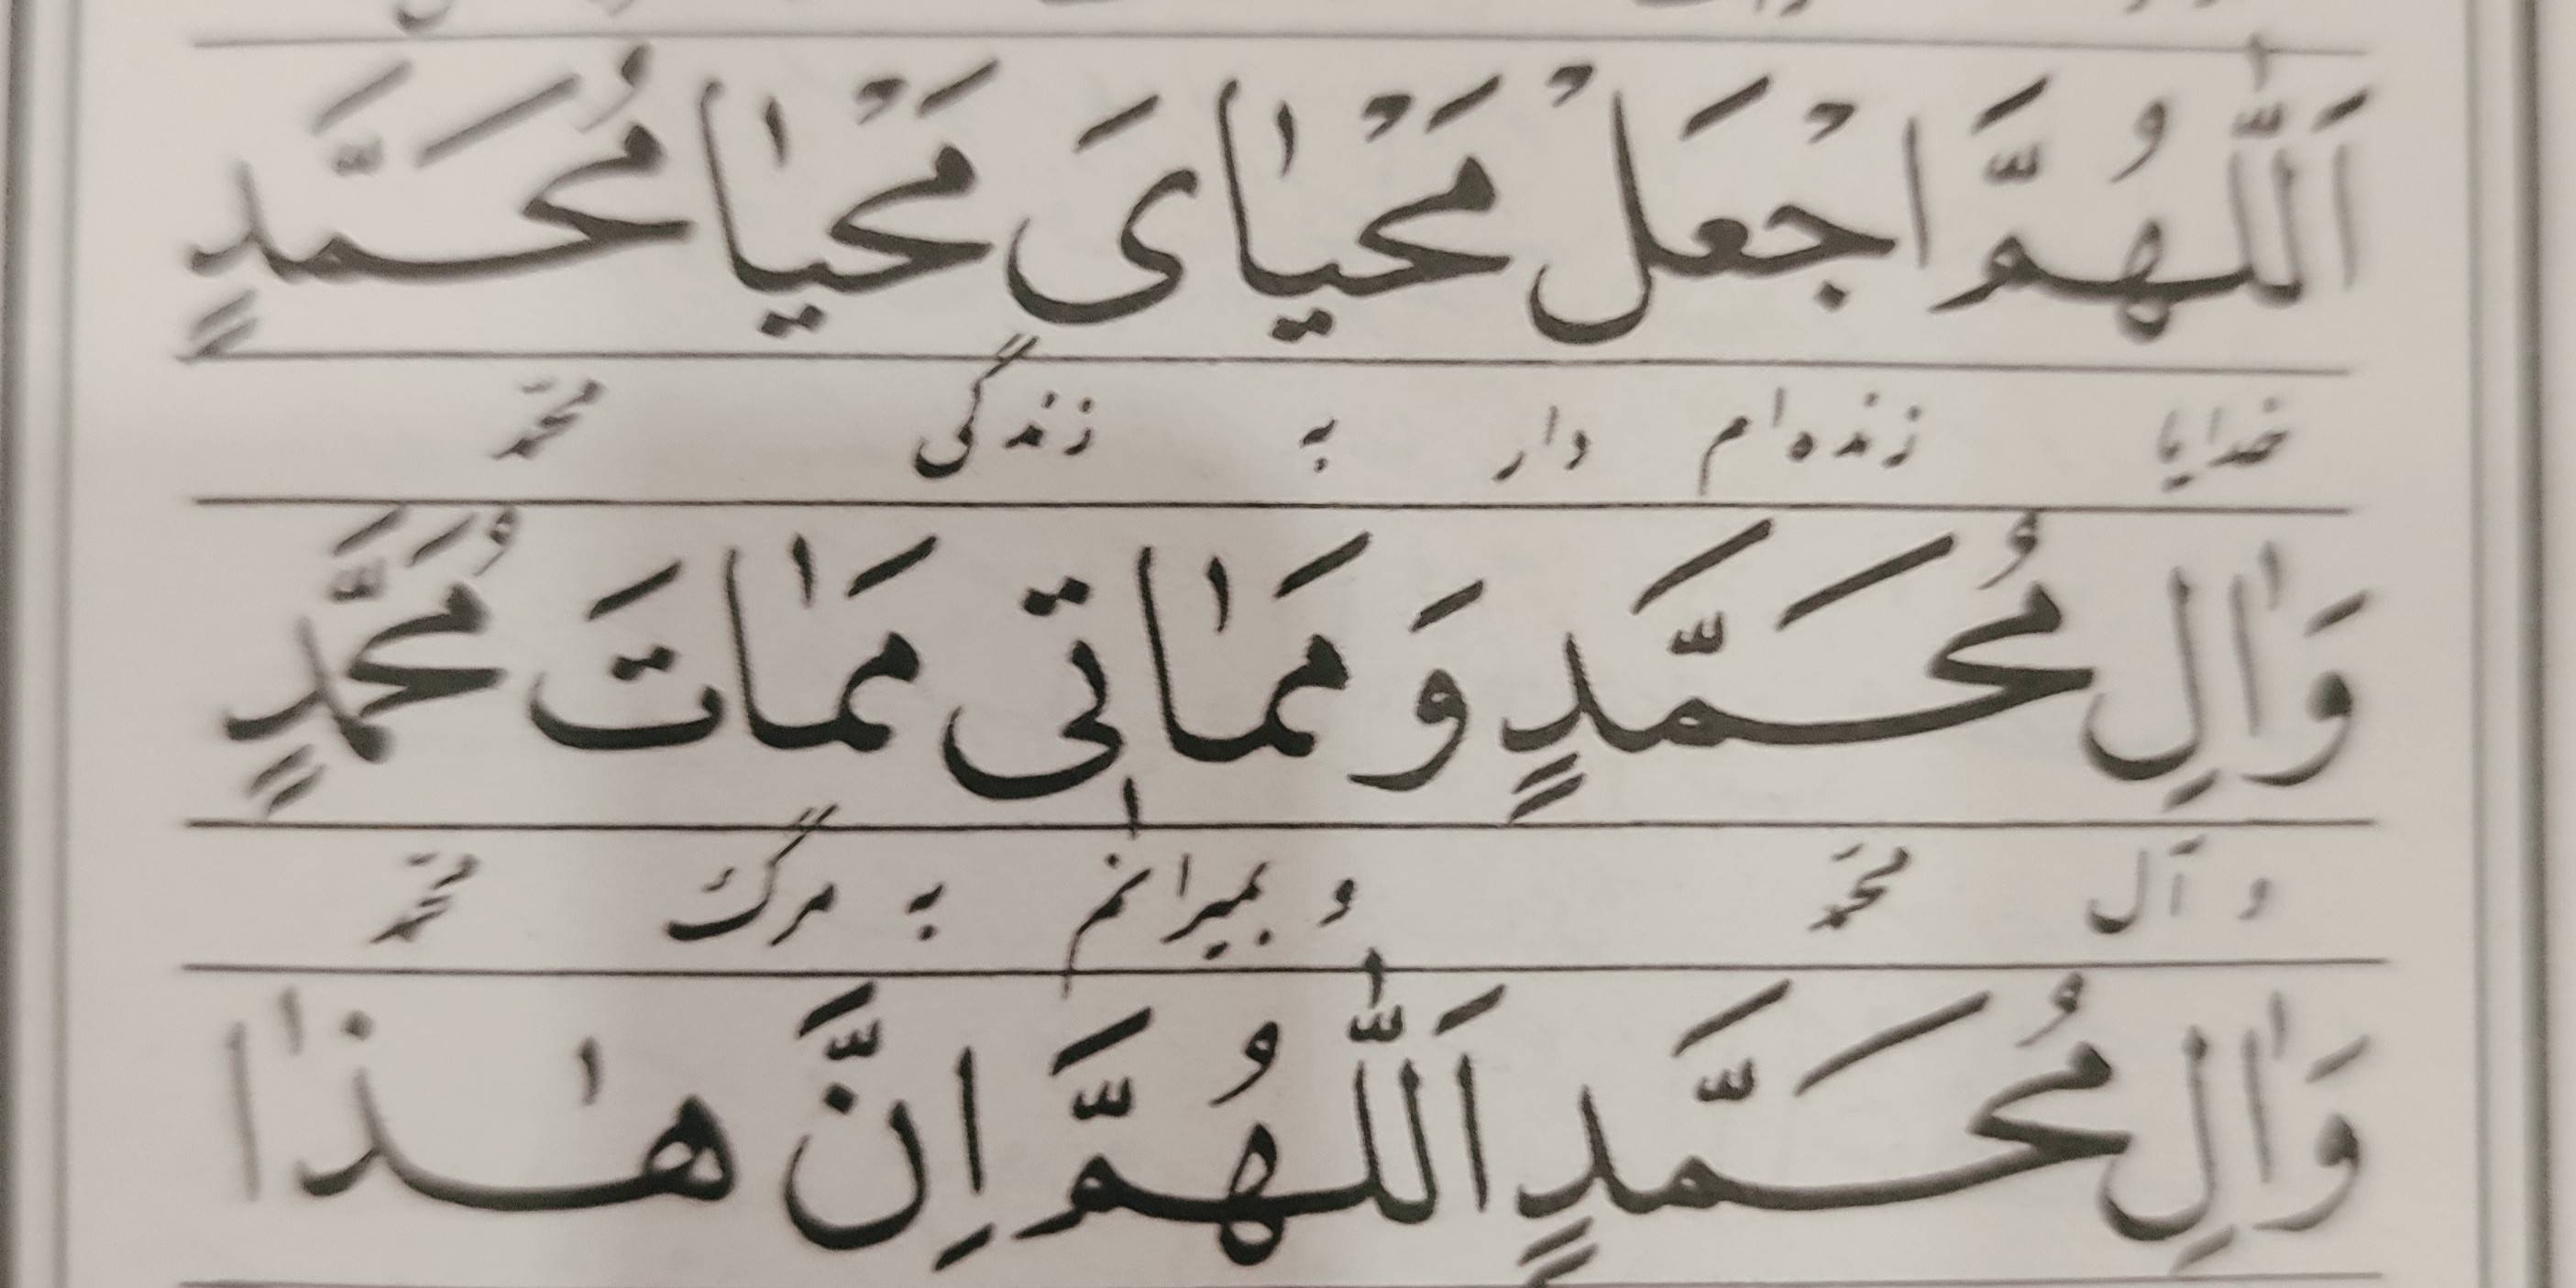 اَللّٰهُمَّ اجْعَلْ مَحْيٰاىَ مَحْيٰا مُحَمَّدٍ
خدایا زنده‌ام دار به زندگی محمّد
وَاٰلِ مُحَمَّدٍ وَمَمٰاتى مَمٰاتَ مُحَمَّدٍ
و آل محمّد و بمیرانم به مرگ محمّد
وَاٰلِ مُحَمَّدٍ اَللّٰهُمَّ اِنَّ هٰذٰا